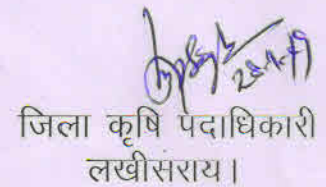 जिला कृषि पदाधिकारी
लखीसराय।